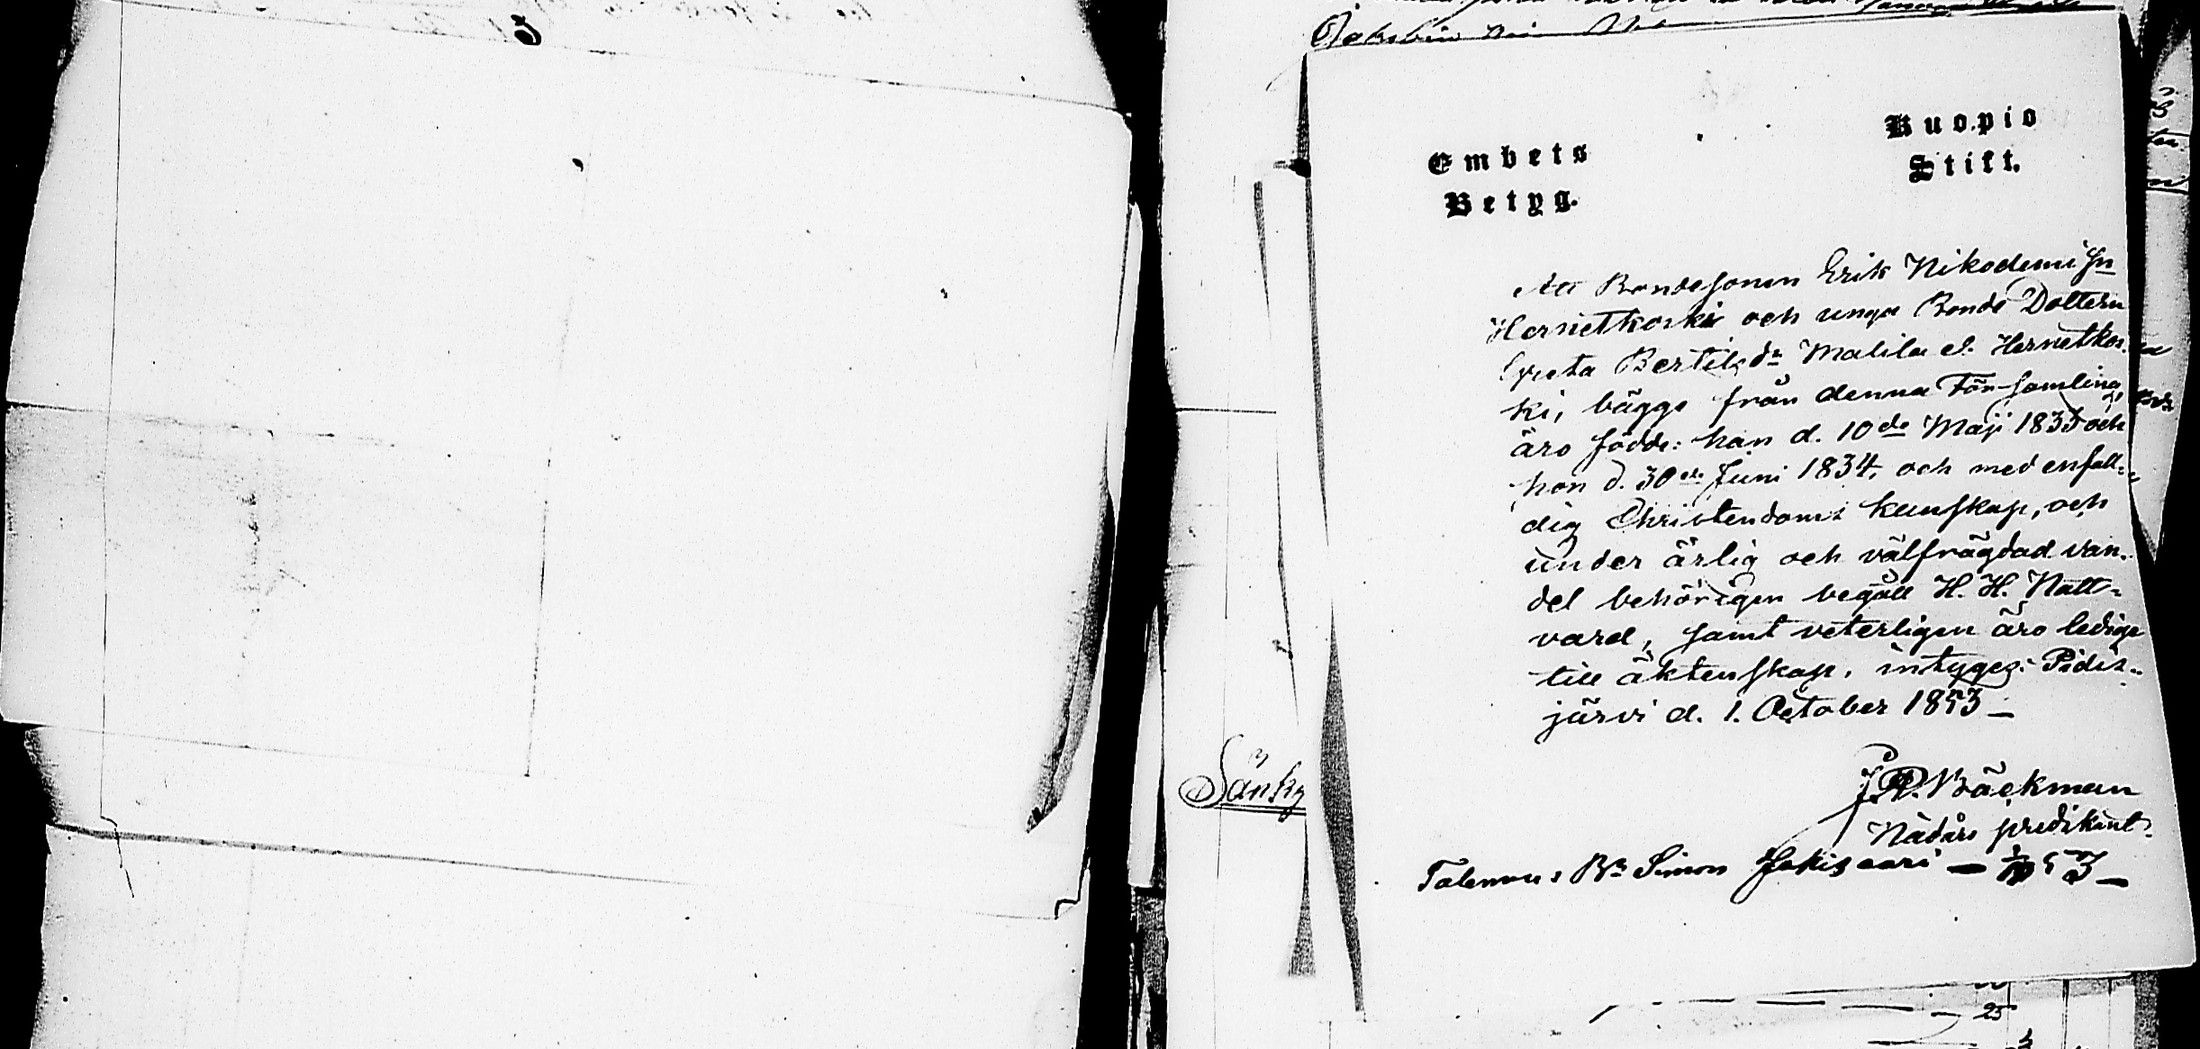 3
Embets
Betyg.
Kuopio
Stift.
Att Bondesonen Erik Nikodemi Sn
Hernetkoski och unga Bonde Dottern
Greta Bertils dr Malila el. Hernetkos-
ki, bägge från denna Församling,
äro födde: han d. 10de Maji 1833 och
hon d. 30de Juni 1834, och med enfal-
dig Christendoms kunskap, och
under ärlig och välfrägdad van-
del behörigen begått H. H. Natt-
vard, samt veterligen äro ledige
till äktenskap, intygas: Pidis-
järvi d. 1. October 1853 —
Bäckman
Nådårs predikant.
Taleman: Bn Simon Jokisaari — 53 —
Sänky
25